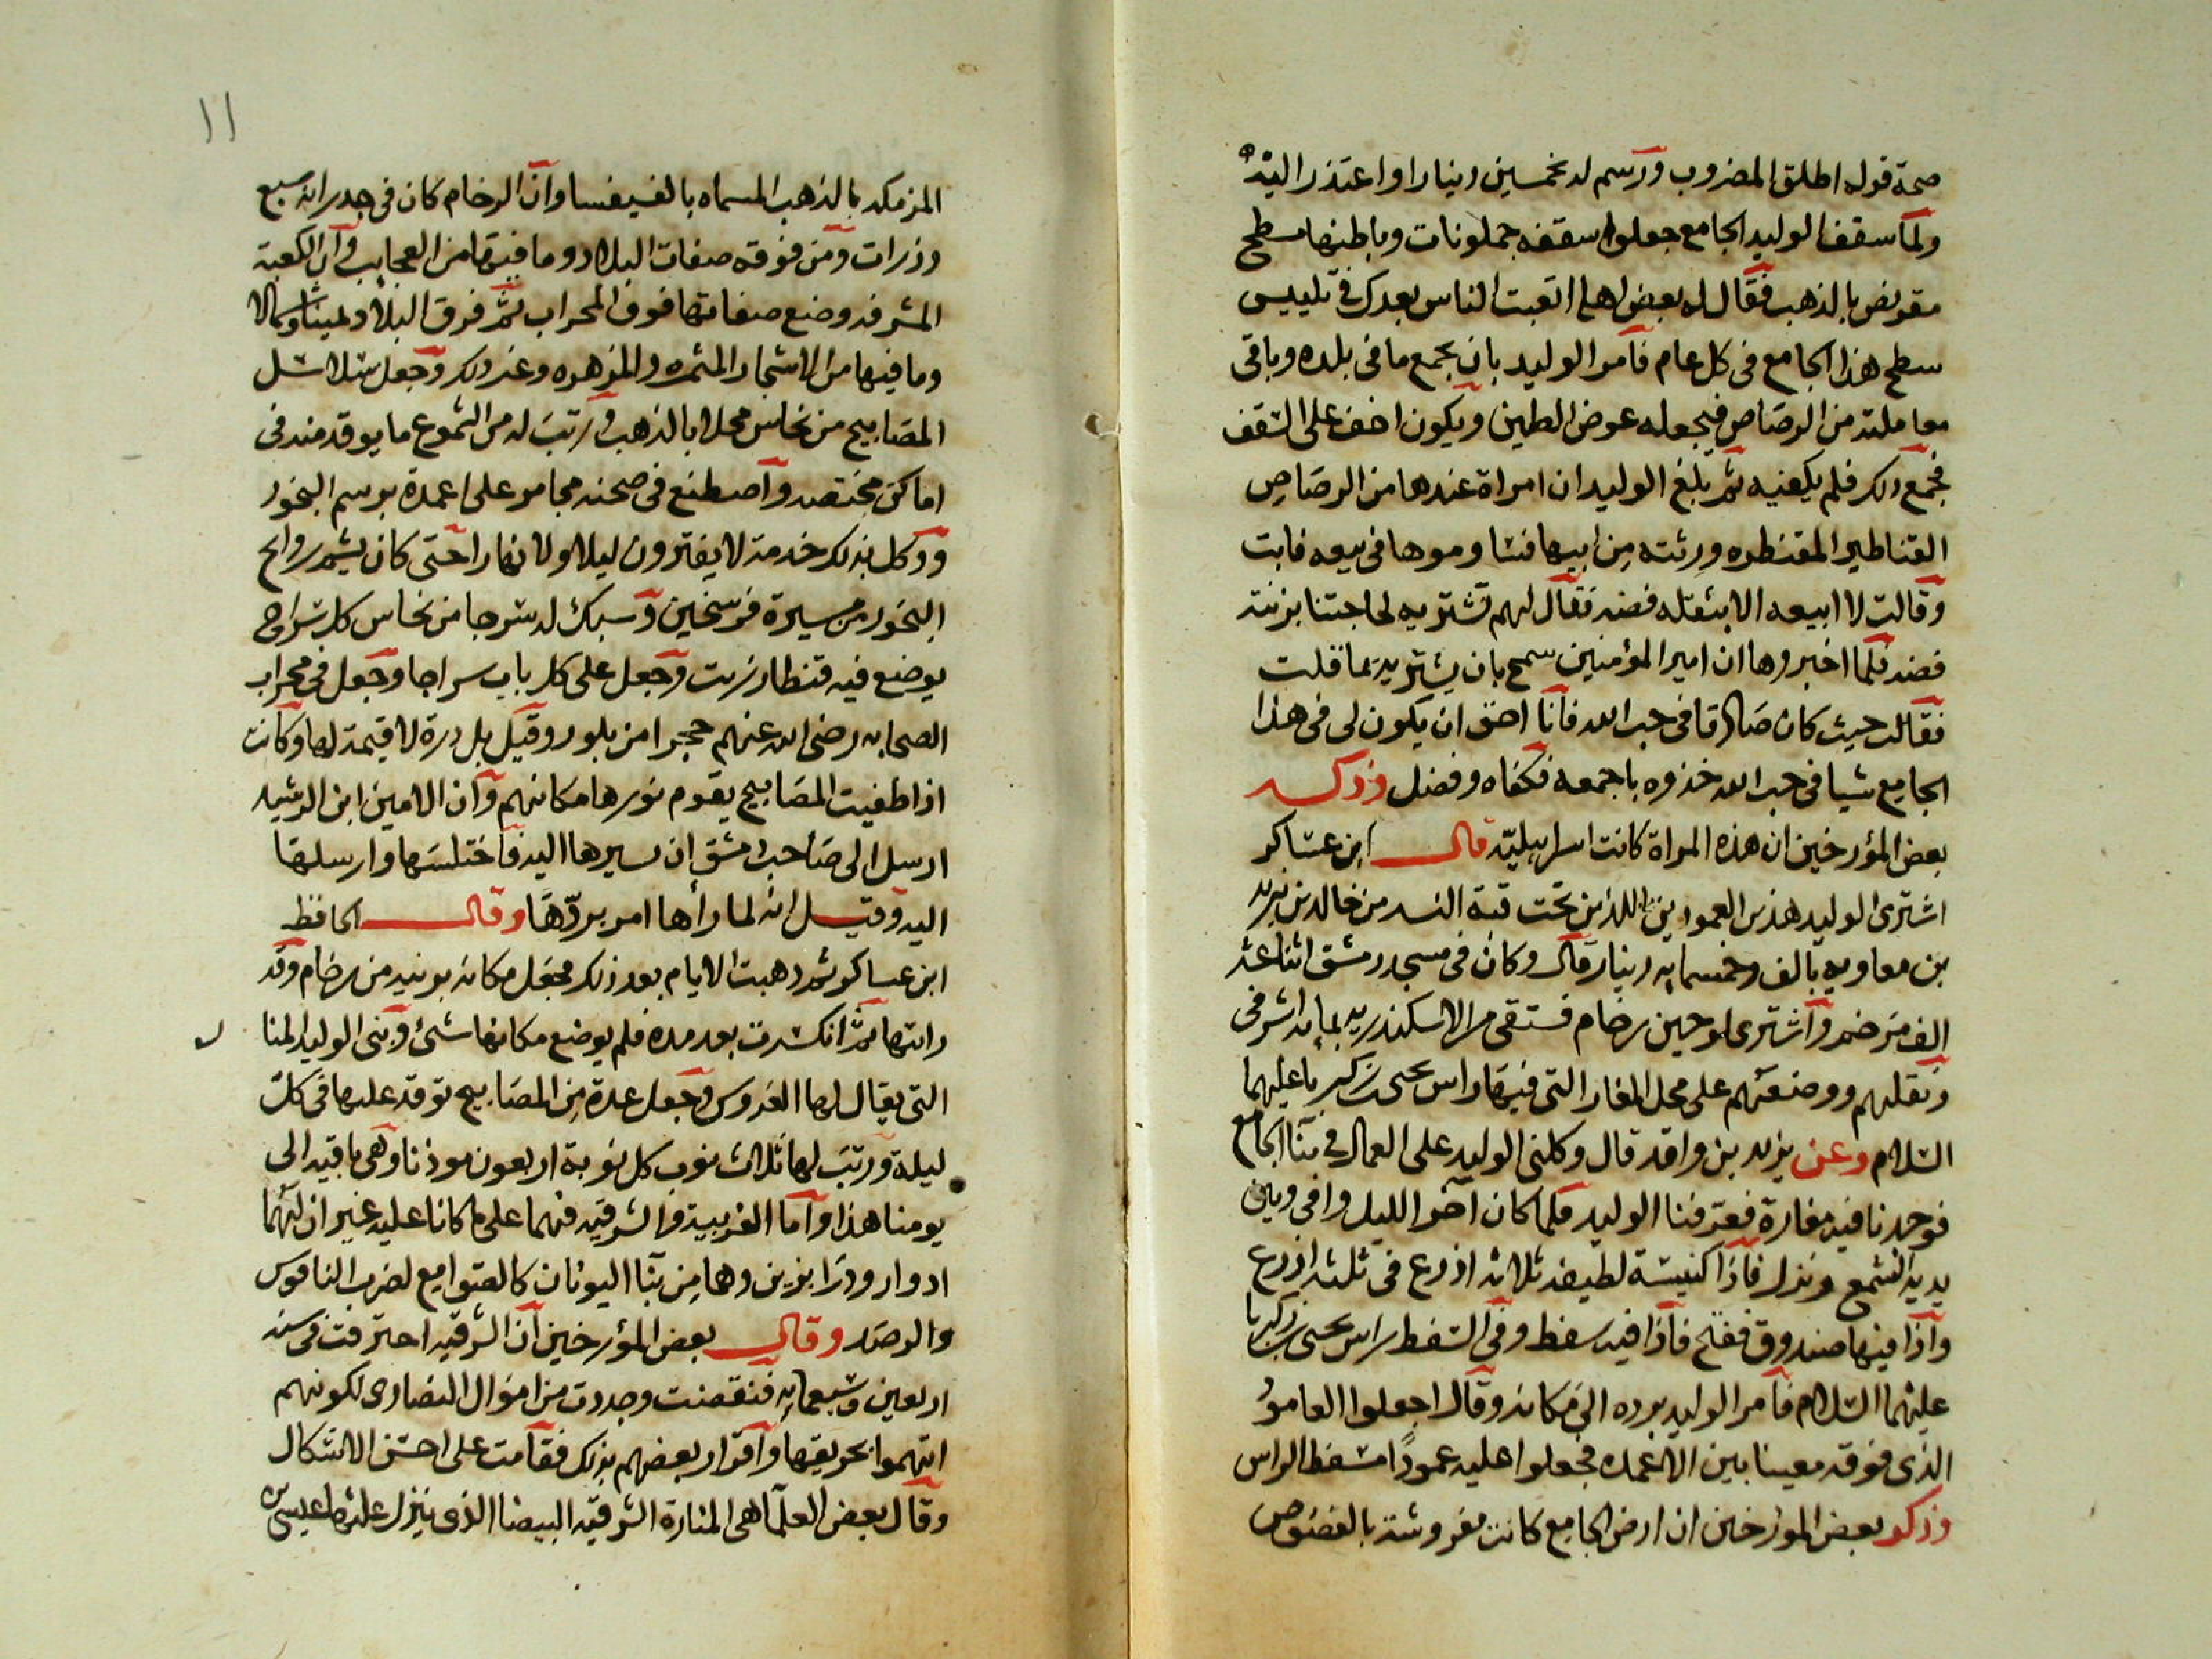 صحة قوله اطلق المضروب ورسم له بخمسين دينارا واعتذر اليه
ولما سقف الوليد الجامع جعلوا سقفه جملونات وباطنها مسطح
مقرنص بالذهب فقال له بعض اهله اتعبت الناس بعدك في تلييس
سطح هذا الجامع في كل عام فامر الوليد بان يجمع ما في بلده وباقي
معاملته من الرصاص فيجعله عوض الطين ويكون اخف على السقف
فجمع ذلك فلم يكفيه ثم بلغ الوليد ان امراة عندها من الرصاص
القناطير المقنطره ورثته من ابيها فتساوموها في بيعه فابت
وقالت لا ابيعه الا بثقله فضه فقال لهم نشتريه لحاجتنا بزنته
فضه فلما اخبروها ان امير المؤمنين سمح بان يشتريه بما قلت
فقالت حيث كان صادقا في حب الله فانا احق ان يكون لي في هذا
الجامع شيا في حب الله خذوه باجمعه فكفاه وفضل وذكر
بعض المؤرخين ان هذه المراة كانت اسراييليه قال ابن عساكر
اشترى الوليد هذين العمودين اللذين تحت قبة النسر من خالد بن يزيد
بن معاويه بالف وخمسمايه دينار قال وكان في مسجد دمشق اثنا عشر
الف مرخم واشترى لوحين رخام فستقي من الاسكندريه بمايه اشرفي
ونقلهم ووضعهم على محل المغار التي فيها راس يحيى بن زكريا عليهما
السلام وعن يزيد بن واقد قال وكلني الوليد على العمال في بنا الجامع
فوجدنا فيه مغارة فعرفنا الوليد فلما كان اخر الليل وافي وبين
يديه الشمع ونزل فاذا كنيسة لطيفه ثلاثه اذرع في ثلثه اذرع
واذا فيها صندوق ففتح فاذا فيه سفط وفي السفط راس يحيى بن زكريا
عليهما السلام فامر الوليد برده الى مكانه وقال اجعلوا العامود
الذي فوقه معينا بين الاعمده فجعلوا عليه عمودا مسفط الراس
وذكر بعض المورخين ان ارض الجامع كانت مفروشة بالفصوص
١١
المزمكه بالذهب المسماه بالفسيفسا وان الرخام كان في جدرانه سبع
وزرات ومن فوقه صفات البلاد وما فيها من العجايب وان الكعبة
المشرفه وضع صفاتها فوق المحراب ثم فرق البلاد يمينا وشمالا
وما فيها من الاشجار المثمره والمزهره وغير ذلك وجعل سلاسل
المصابيح من نحاس محلا بالذهب ورتب له من الشموع ما يوقد منه في
اماكن مختصه واصطنع في صحنه مجامر على اعمدة برسم البخور
ووكل بذلك خدمة لا يفترون ليلا ولا نهارا حتى كان يشم روايح
البخور من مسيرة فرسخين وسبك له سرجا من نحاس كل سراج
يوضع فيه قنطار زيت وجعل على كل باب سراجا وجعل في محراب
الصحابه رضي الله عنهم حجرا من بلور وقيل بل درة لا قيمة لها وكانت
اذا طفيت المصابيح يقوم نورها مكانهم وان الامين ابن الرشيد
ارسل الى صاحب دمشق ان سيرها اليه فاختلسها وارسلها
اليه وقيل انه لما رأها امر بردها وقال الحافظ
ابن عساكر ثم ذهبت الايام بعد ذلك فجعل مكانه برنيه من رخام وقد
رايتها ثم انكسرت بعد مده فلم يوضع مكانها شئ وبنى الوليد المنا
التي يقال لها العروس وجعل عدة من المصابيح توقد عليها في كل
ليلة ورتب لها ثلاث نوب كل نوبة اربعون موذنا وهي باقيه الى
يومنا هذا واما الغربيية والشرقيه فهما على ما كانا عليه غير ان لهما
ادوار ودرابزين وهما من بنا اليونان كالصوامع لضرب الناقوس
والرصد وقال بعض المؤرخين ان الشرقيه احترقت في سنه
اربعين وسبعمايه فنقضت وجددت من اموال النصارى لكونهم
اتهموا بحريقها واقرار بعضهم بذلك فقامت على احسن الاشكال
وقال بعض العلما هي المنارة الشرقيه البيضا الذي ينزل عليها عيسى بن